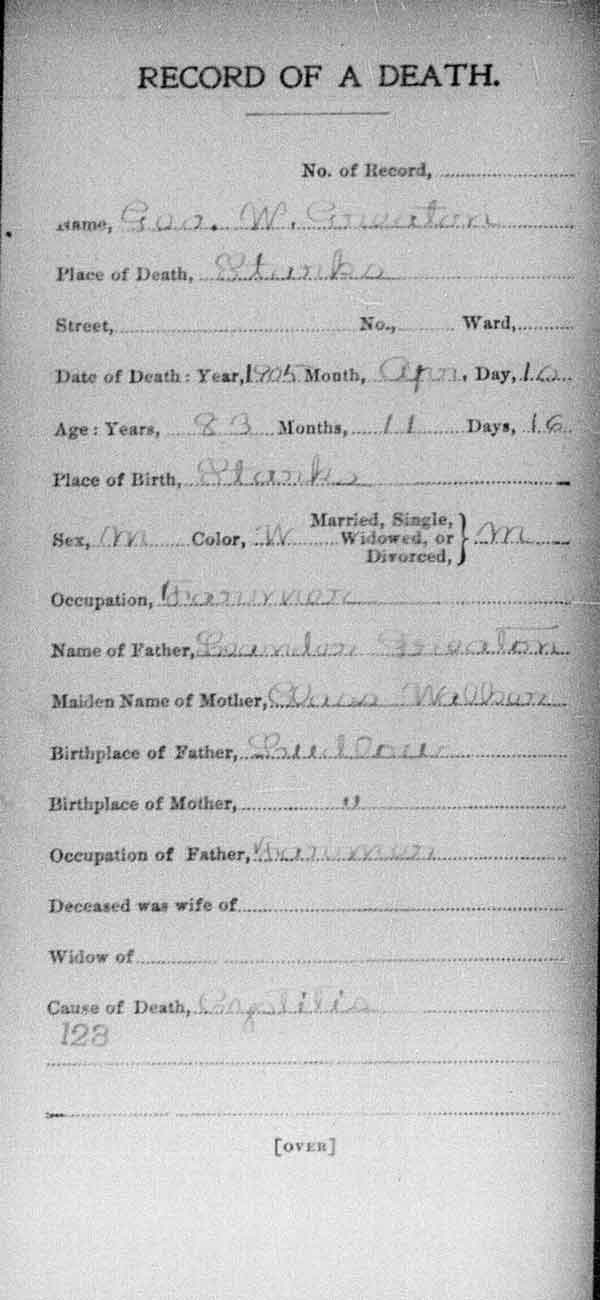 RECORD OF A DEATH.
No. of Record,
Name, Geo. W. Greaton
Place of Death, Starks
Street, No., Ward,
Date of Death: Year, 1905 Month, Apr, Day, 10
Age: Years, 83 Months, 11 Days, 16
Place of Birth, Starks
Sex, M Color, W Married, Single, Widowed, or Divorced, } M
Occupation, Farmer
Name of Father, Greaton
Maiden Name of Mother,
Birthplace of Father,
Birthplace of Mother, "
Occupation of Father, Farmer
Deceased was wife of
Widow of
Cause of Death, Cystitis
123
[OVER]